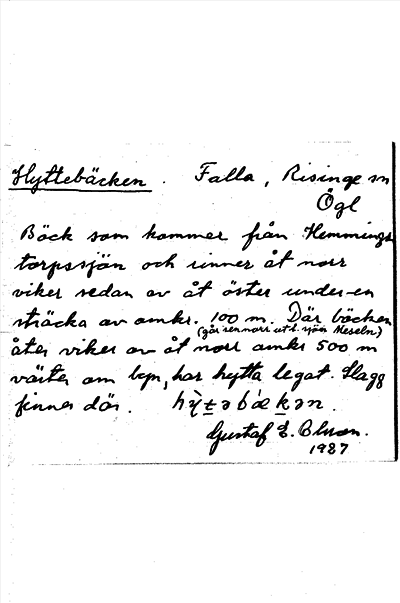 Hyttebäcken. Falla, Risinge sn
Ögl
Bäck som kommer från Hemmings
torpssjön och rinner åt norr
viker sedan av åt öster under en
sträcka av omkr. 100 m. Där bäcken
(går sen norr ut t. sjön Meseln)
åter viker av åt norr omkr 500 m
väster om byn, har hytta legat. Slagg
finnes där. hỳtəbækən.
Gustaf E.
1987